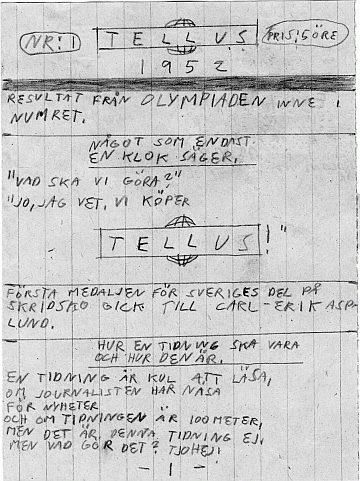 NR: 1
TELLUS
PRIS: 5 ÖRE
1952
RESULTAT FRÅN OLYMPIADEN INNE I
NUMRET.
NÅGOT SOM ENDAST
EN KLOK SÄGER.
"VAD SKA VI GÖRA?"
"JO, JAG VET. VI KÖPER
TELLUS!"
FÖRSTA MEDALJEN FÖR SVERIGES DEL PÅ
SKRIDSKO GICK TILL CARL-ERIK ASP-
LUND.
HUR EN TIDNING SKA VARA
OCH HUR DEN ÄR.
EN TIDNING ÄR KUL ATT LÄSA,
OM JOURNALISTEN HAR NÄSA
FÖR NYHETER
OCH OM TIDNINGEN ÄR 100 METER,
MEN DET ÄR DENNA TIDNING EJ.
MEN VAD GÖR DET? TJOHEJ!
- 1 -